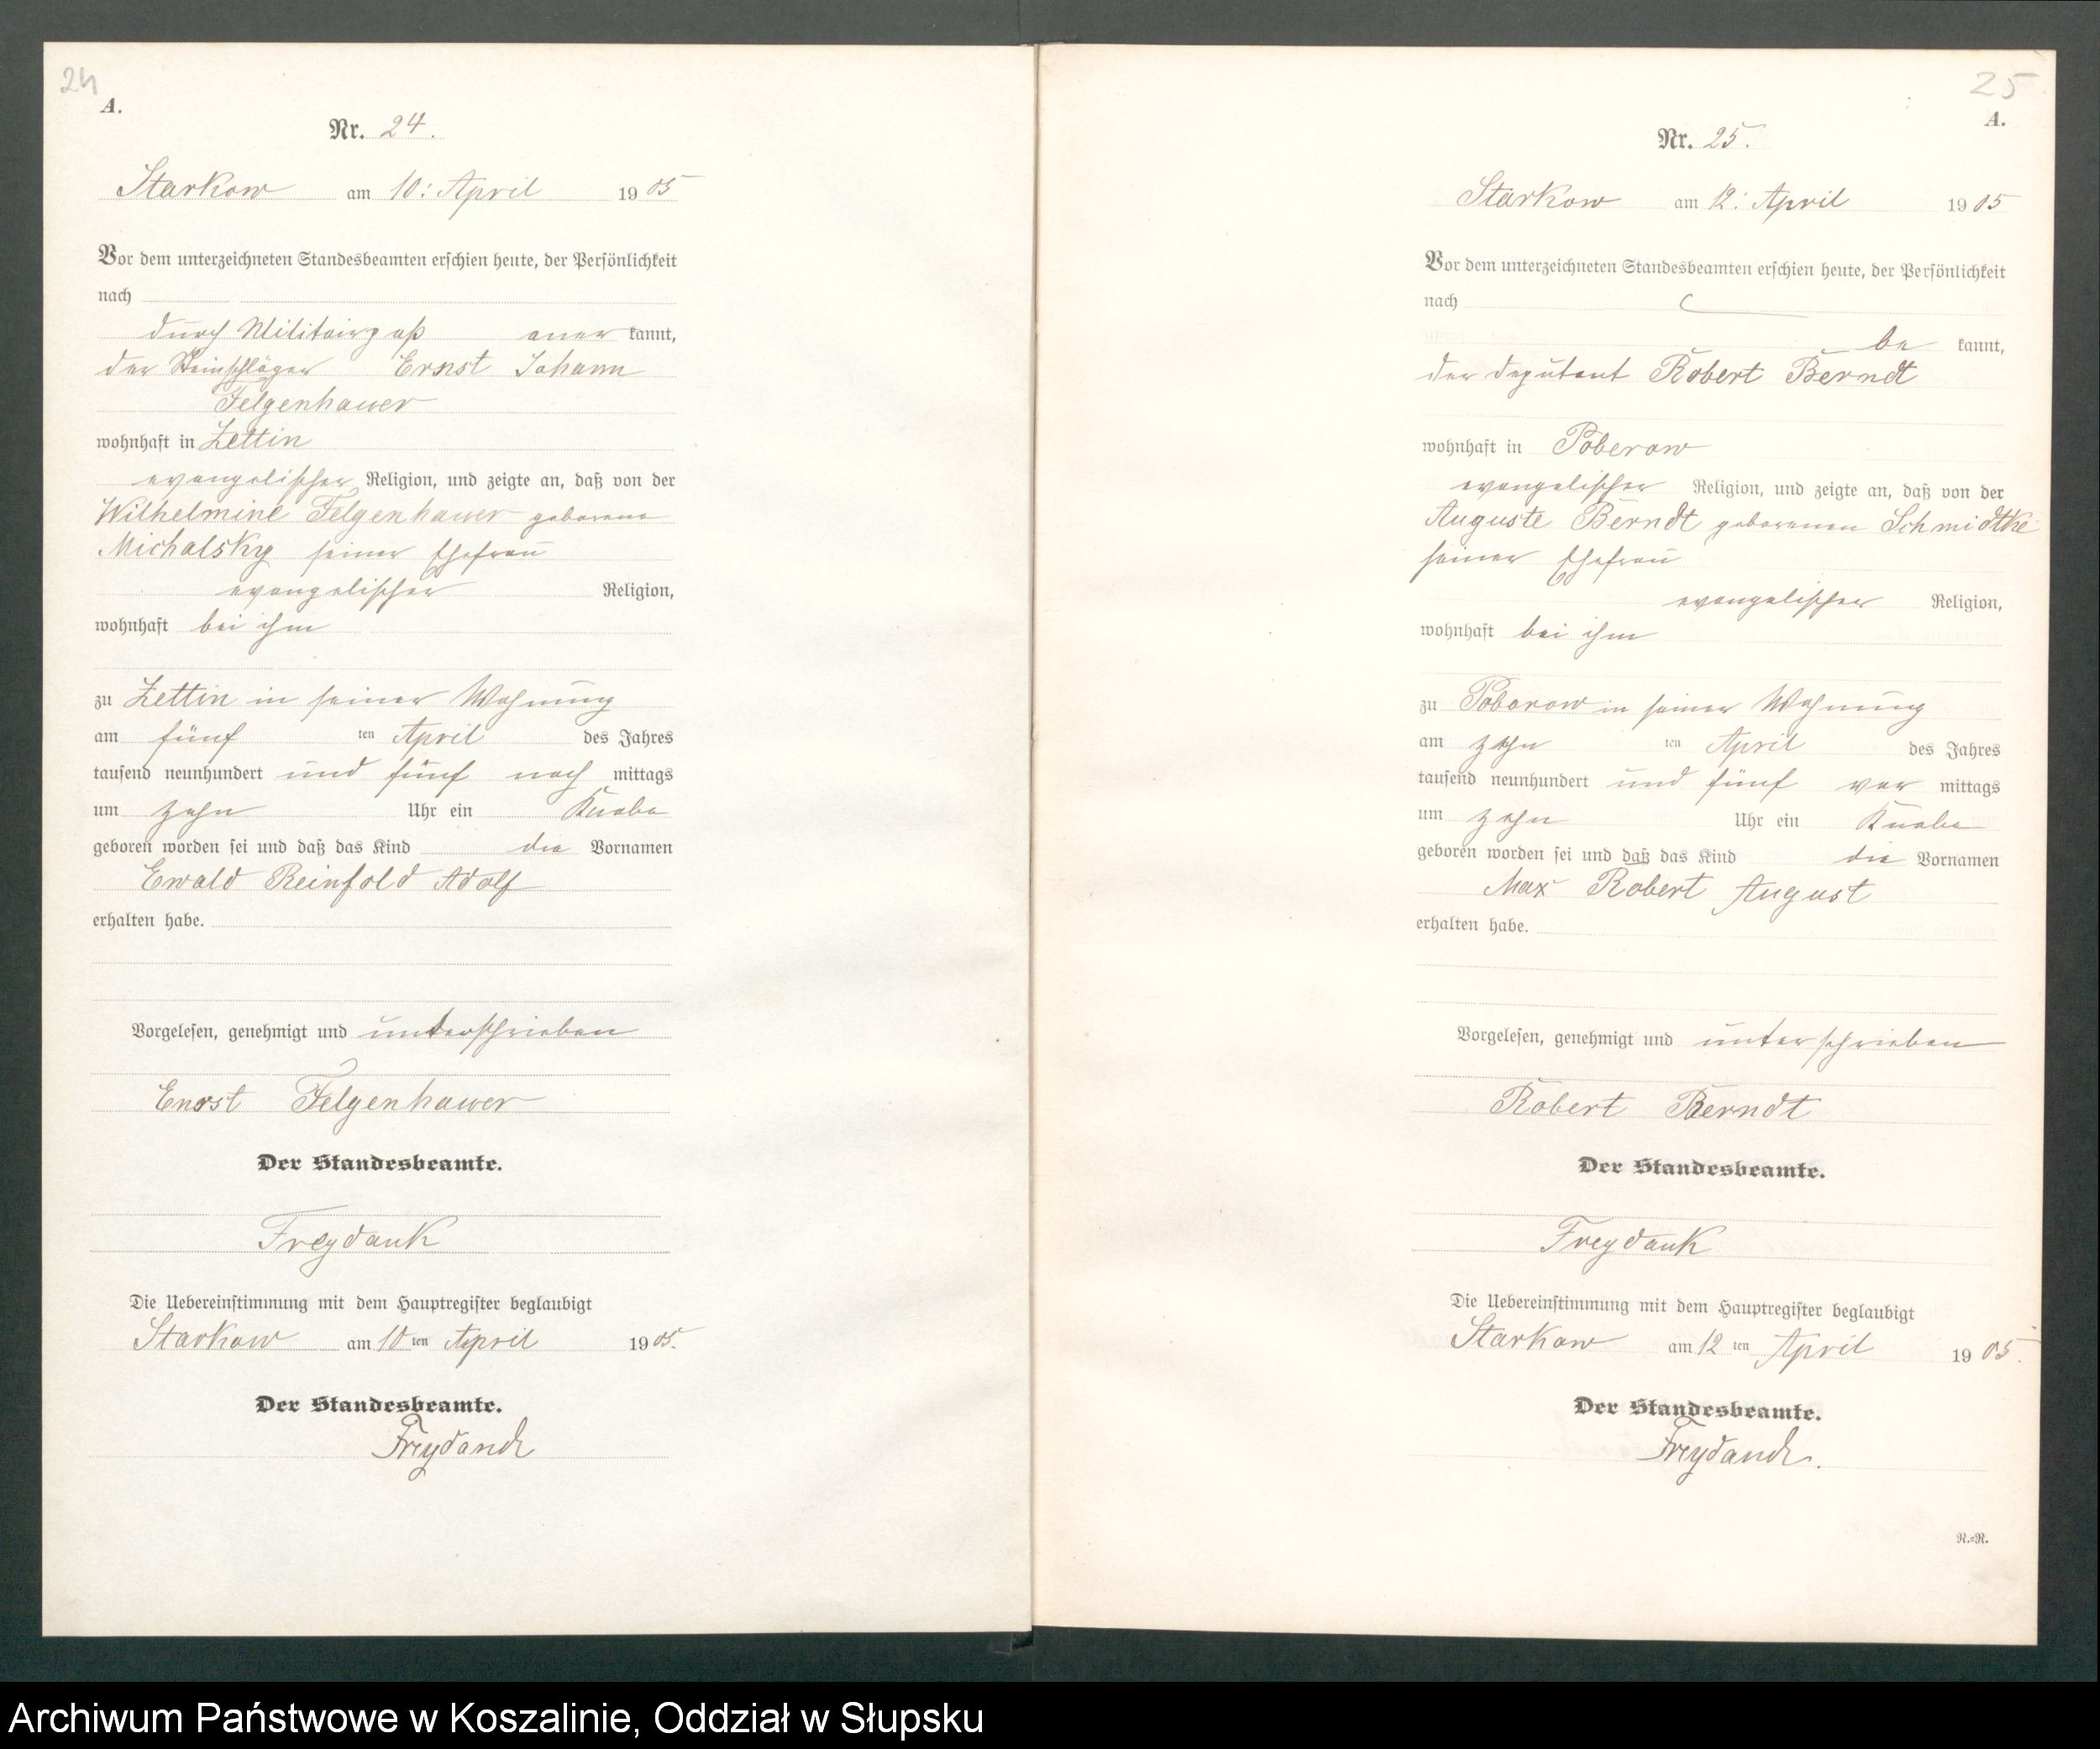 24
A.
Nr. 24.
Starkow am 10: April 1905
Vor dem unterzeichneten Standesbeamten erschien heute, der Persönlichkeit
nach
durch Militairpaß aner kannt,
der Steinschläger Ernst Johann
Felgenhauer
wohnhaft in Zettin
evangelischer Religion, und zeigte an, daß von der
Wilhelmine Felgenhauer geborene
Michalsky seiner Ehefrau
evangelischer Religion,
wohnhaft bei ihm
zu Zettin in seiner Wohnung
am fünf ten April des Jahres
tausend neunhundert und fünf nach mittags
um zehn Uhr ein Knabe
geboren worden sei und daß das Kind die Vornamen
Ewald Reinhold Adolf
erhalten habe.
Vorgelesen, genehmigt und unterschrieben
Ernst Felgenhauer
Der Standesbeamte.
Freydank
Die Uebereinstimmung mit dem Hauptregister beglaubigt
Starkow am 10 ten April 1905.
Der Standesbeamte.
Freydank
25
A.
Nr. 25.
Starkow am 12: April 1905
Vor dem unterzeichneten Standesbeamten erschien heute, der Persönlichkeit
nach
be kannt,
der Deputant Robert Berndt
wohnhaft in Poberow
evangelischer Religion, und zeigte an, daß von der
Auguste Berndt geborenen Schmidtke
seiner Ehefrau
evangelischer Religion,
wohnhaft bei ihm
zu Poberow in seiner Wohnung
am zehn ten April des Jahres
tausend neunhundert und fünf vor mittags
um zehn Uhr ein Knabe
geboren worden sei und daß das Kind die Vornamen
Max Robert August
erhalten habe.
Vorgelesen, genehmigt und unterschrieben
Robert Berndt
Der Standesbeamte.
Freydank
Die Uebereinstimmung mit dem Hauptregister beglaubigt
Starkow am 12 ten April 1905.
Der Standesbeamte.
Freydank.
N.=R.
Archiwum Państwowe w Koszalinie, Oddział w Słupsku